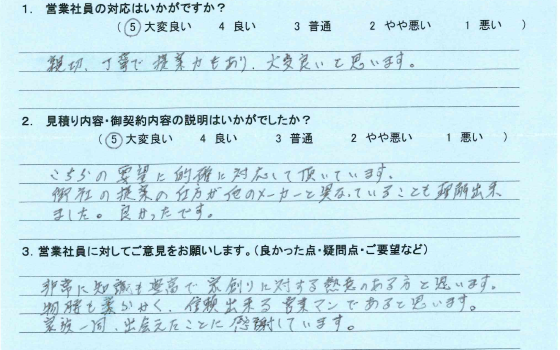 1. 営業社員の対応はいかがですか?
(⑤大変良い 4 良い 3 普通 2 やや悪い 1 悪い )
親切、丁寧で提案力もあり、大変良いと思います。
2. 見積り内容・御契約内容の説明はいかがでしたか?
(⑤大変良い 4 良い 3 普通 2 やや悪い 1 悪い )
こちらの要望に的確に対応して頂いています。
御社の提案の仕方が他のメーカーと異なっていることも理解出来
ました。良かったです。
3. 営業社員に対してご意見をお願いします。(良かった点・疑問点・ご要望など)
非常に知識も豊富で家創りに対する熱意のある方と思います。
物腰も柔かく、信頼出来る営業マンであると思います。
家族一同、出会えたことに感謝しています。